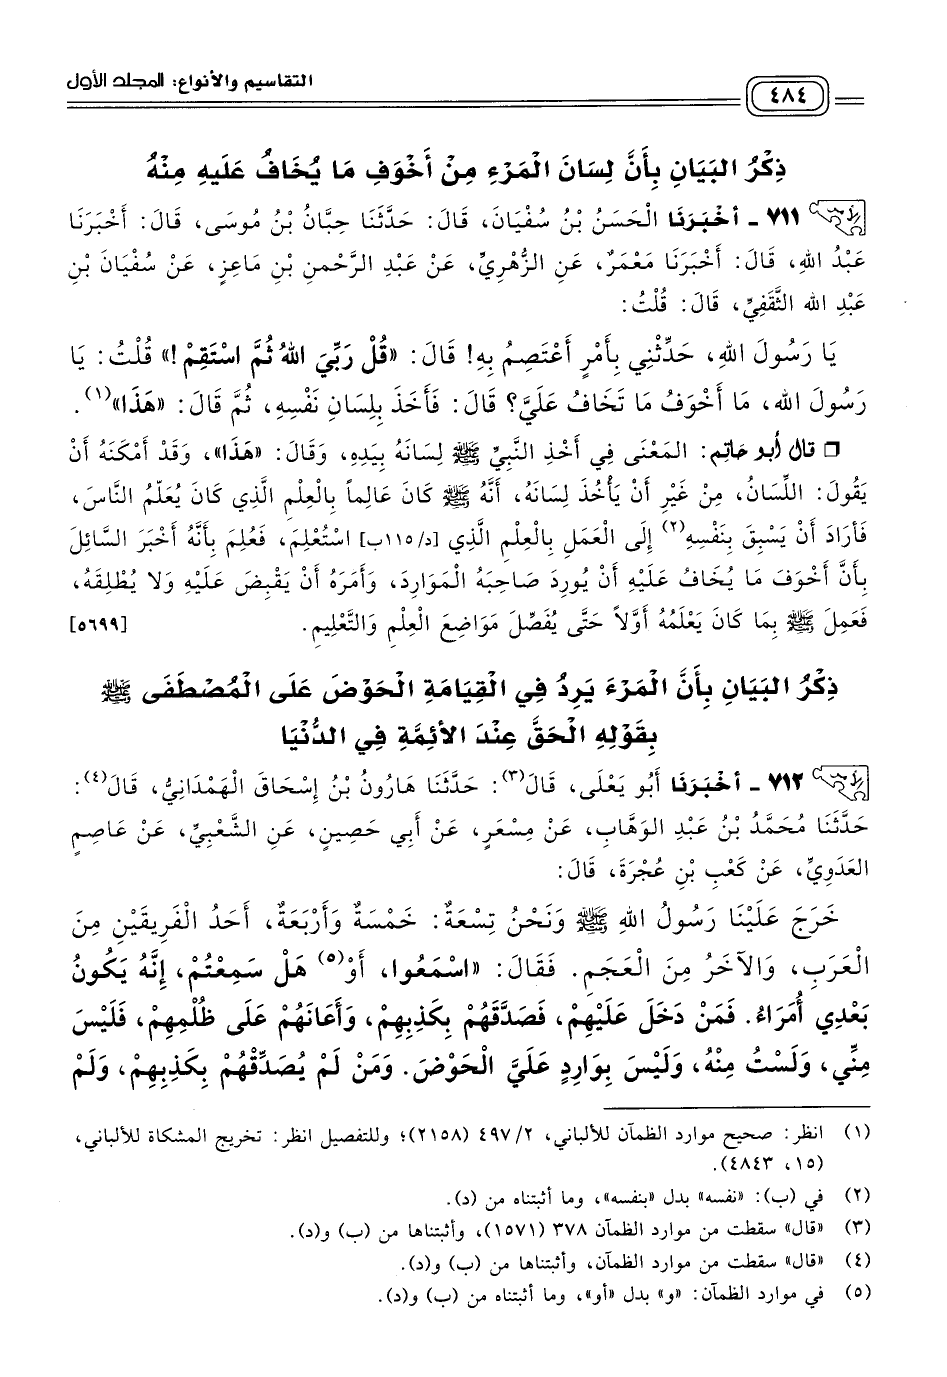 ٤٨٤ التقاسيم والأنواع: المجلد الأول
ذِكْرُ البَيَانِ بِأَنَّ لِسَانَ الْمَرْءِ مِنْ أَخْوَفِ مَا يُخَافُ عَلَيهِ مِنْهُ
٧١١ - أخْبَرَنَا الْحَسَنُ بْنُ سُفْيَانَ، قَالَ: حَدَّثَنَا حِبَّانُ بْنُ مُوسَى، قَالَ: أَخْبَرَنَا
عَبْدُ اللهِ، قَالَ: أَخْبَرَنَا مَعْمَرٌ، عَنِ الزُّهْرِيِّ، عَنْ عَبْدِ الرَّحْمنِ بْنِ مَاعِزٍ، عَنْ سُفْيَانَ بْنِ
عَبْدِ الله الثَّقَفِيِّ، قَالَ: قُلْتُ:
يَا رَسُولَ اللهِ، حَدِّثْنِي بِأَمْرٍ أَعْتَصِمُ بِهِ! قَالَ: «قُلْ رَبِّيَ اللهُ ثُمَّ اسْتَقِمْ!» قُلْتُ: يَا
رَسُولَ الله، مَا أَخْوَفُ مَا تَخَافُ عَلَيَّ؟ قَالَ: فَأَخَذَ بِلِسَانِ نَفْسِهِ، ثُمَّ قَالَ: «هَذَا»(١).
❒ قال أبو حاتِم: المَعْنَى فِي أَخْذِ النَّبِيِّ ﷺ لِسَانَهُ بِيَدِهِ، وَقَالَ: «هَذَا»، وَقَدْ أَمْكَنَهُ أَنْ
يَقُولَ: اللِّسَانُ، مِنْ غَيْرِ أَنْ يَأْخُذَ لِسَانَهُ، أَنَّهُ ﷺ كَانَ عَالِماً بِالْعِلْمِ الَّذِي كَانَ يُعَلِّمُ النَّاسَ،
فَأَرَادَ أَنْ يَسْبِقَ بِنَفْسِهِ(٢) إِلَى الْعَمَلِ بِالْعِلْمِ الَّذِي [د/١١٥ب] اسْتُعْلِمَ، فَعُلِمَ بِأَنَّهُ أَخْبَرَ السَّائِلَ
بِأَنَّ أَخْوَفَ مَا يُخَافُ عَلَيْهِ أَنْ يُورِدَ صَاحِبَهُ الْمَوَارِدَ، وَأَمَرَهُ أَنْ يَقْبِضَ عَلَيْهِ وَلا يُطْلِقَهُ،
فَعَمِلَ ﷺ بِمَا كَانَ يَعْلَمُهُ أَوَّلاً حَتَّى يُفَصِّلَ مَوَاضِعَ الْعِلْمِ وَالتَّعْلِيمِ. [٥٦٩٩]
ذِكْرُ البَيَانِ بِأَنَّ الْمَرْءَ يَرِدُ فِي الْقِيَامَةِ الْحَوْضَ عَلَى الْمُصْطَفَى ﷺ
بِقَوْلِهِ الْحَقَّ عِنْدَ الأَئِمَّةِ فِي الدُّنْيَا
٧١٢ - أخْبَرَنَا أَبُو يَعْلَى، قَالَ(٣): حَدَّثَنَا هَارُونُ بْنُ إِسْحَاقَ الْهَمْدَانِيُّ، قَالَ(٤):
حَدَّثَنَا مُحَمَّدُ بْنُ عَبْدِ الوَهَّابِ، عَنْ مِسْعَرٍ، عَنْ أَبِي حَصِينٍ، عَنِ الشَّعْبِيِّ، عَنْ عَاصِمٍ
العَدَوِيِّ، عَنْ كَعْبِ بْنِ عُجْرَةَ، قَالَ:
خَرَجَ عَلَيْنَا رَسُولُ اللهِ ﷺ وَنَحْنُ تِسْعَةٌ: خَمْسَةٌ وَأَرْبَعَةٌ، أَحَدُ الْفَرِيقَيْنِ مِنَ
الْعَرَبِ، وَالآخَرُ مِنَ الْعَجَمِ. فَقَالَ: «اسْمَعُوا، أَوْ(٥) هَلْ سَمِعْتُمْ، إِنَّهُ يَكُونُ
بَعْدِي أُمَرَاءُ. فَمَنْ دَخَلَ عَلَيْهِمْ، فَصَدَّقَهُمْ بِكَذِبِهِمْ، وَأَعَانَهُمْ عَلَى ظُلْمِهِمْ، فَلَيْسَ
مِنِّي، وَلَسْتُ مِنْهُ، وَلَيْسَ بِوَارِدٍ عَلَيَّ الْحَوْضَ. وَمَنْ لَمْ يُصَدِّقْهُمْ بِكَذِبِهِمْ، وَلَمْ
(١) انظر: صحيح موارد الظمآن للألباني، ٤٩٧/٢ (٢١٥٨)؛ وللتفصيل انظر: تخريج المشكاة للألباني،
(١٥، ٤٨٤٣).
(٢) في (ب): «نفسه» بدل «بنفسه»، وما أثبتناه من (د).
(٣) «قال» سقطت من موارد الظمآن ٣٧٨ (١٥٧١)، وأثبتناها من (ب) و(د).
(٤) «قال» سقطت من موارد الظمآن، وأثبتناها من (ب) و(د).
(٥) في موارد الظمآن: «و» بدل «أو»، وما أثبتناه من (ب) و(د).